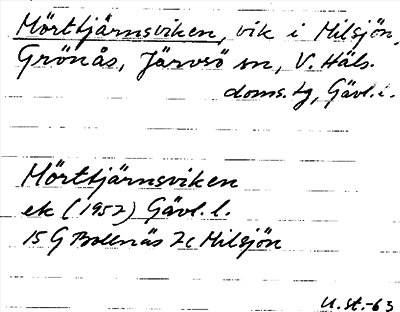 Mörttjärnsviken, vik i Milsjön,
Grönås, Järvsö sn, V. Häls.
doms.tg, Gävl.l.
Mörttjärnsviken
ek (1952) Gävl.l.
15 G Bollnäs 7c Milsjön
U.st.-63